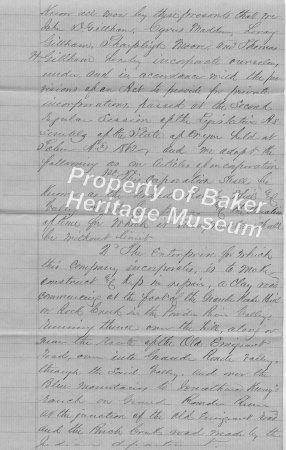 Know all men by these presents that we
John D. Gillham, Cyrus Leroy
Gillham, Moore, and Thomas
H. Gillham hereby incorporate ourselves
under and in accordance with the pro
visions of an Act to provide for private
incorporations passed at the Second
regular Session of the Legislative As
sembly of the State of Oregon held at
Salem A.D. 1862 and we adopt the
following as our Articles of incorporation
This Corporation shall be
known as the
of time for which is
be without limit
Property of Baker
Heritage Museum
2d The Enterprise for which
this Company incorporates, is to make
construct & keep in repair, a Clay road
commencing at the foot of the Grande Ronde Hill
on Rock Creek in the Powder River Valley,
running thence over the hill, along or
near the route of the Old Emigrant
road, over into Grande Ronde Valley,
through the said Valley, and over the
Blue mountains to
ranch on Grand Ronde River
at the junction of the Old Emigrant road
and the road made by the